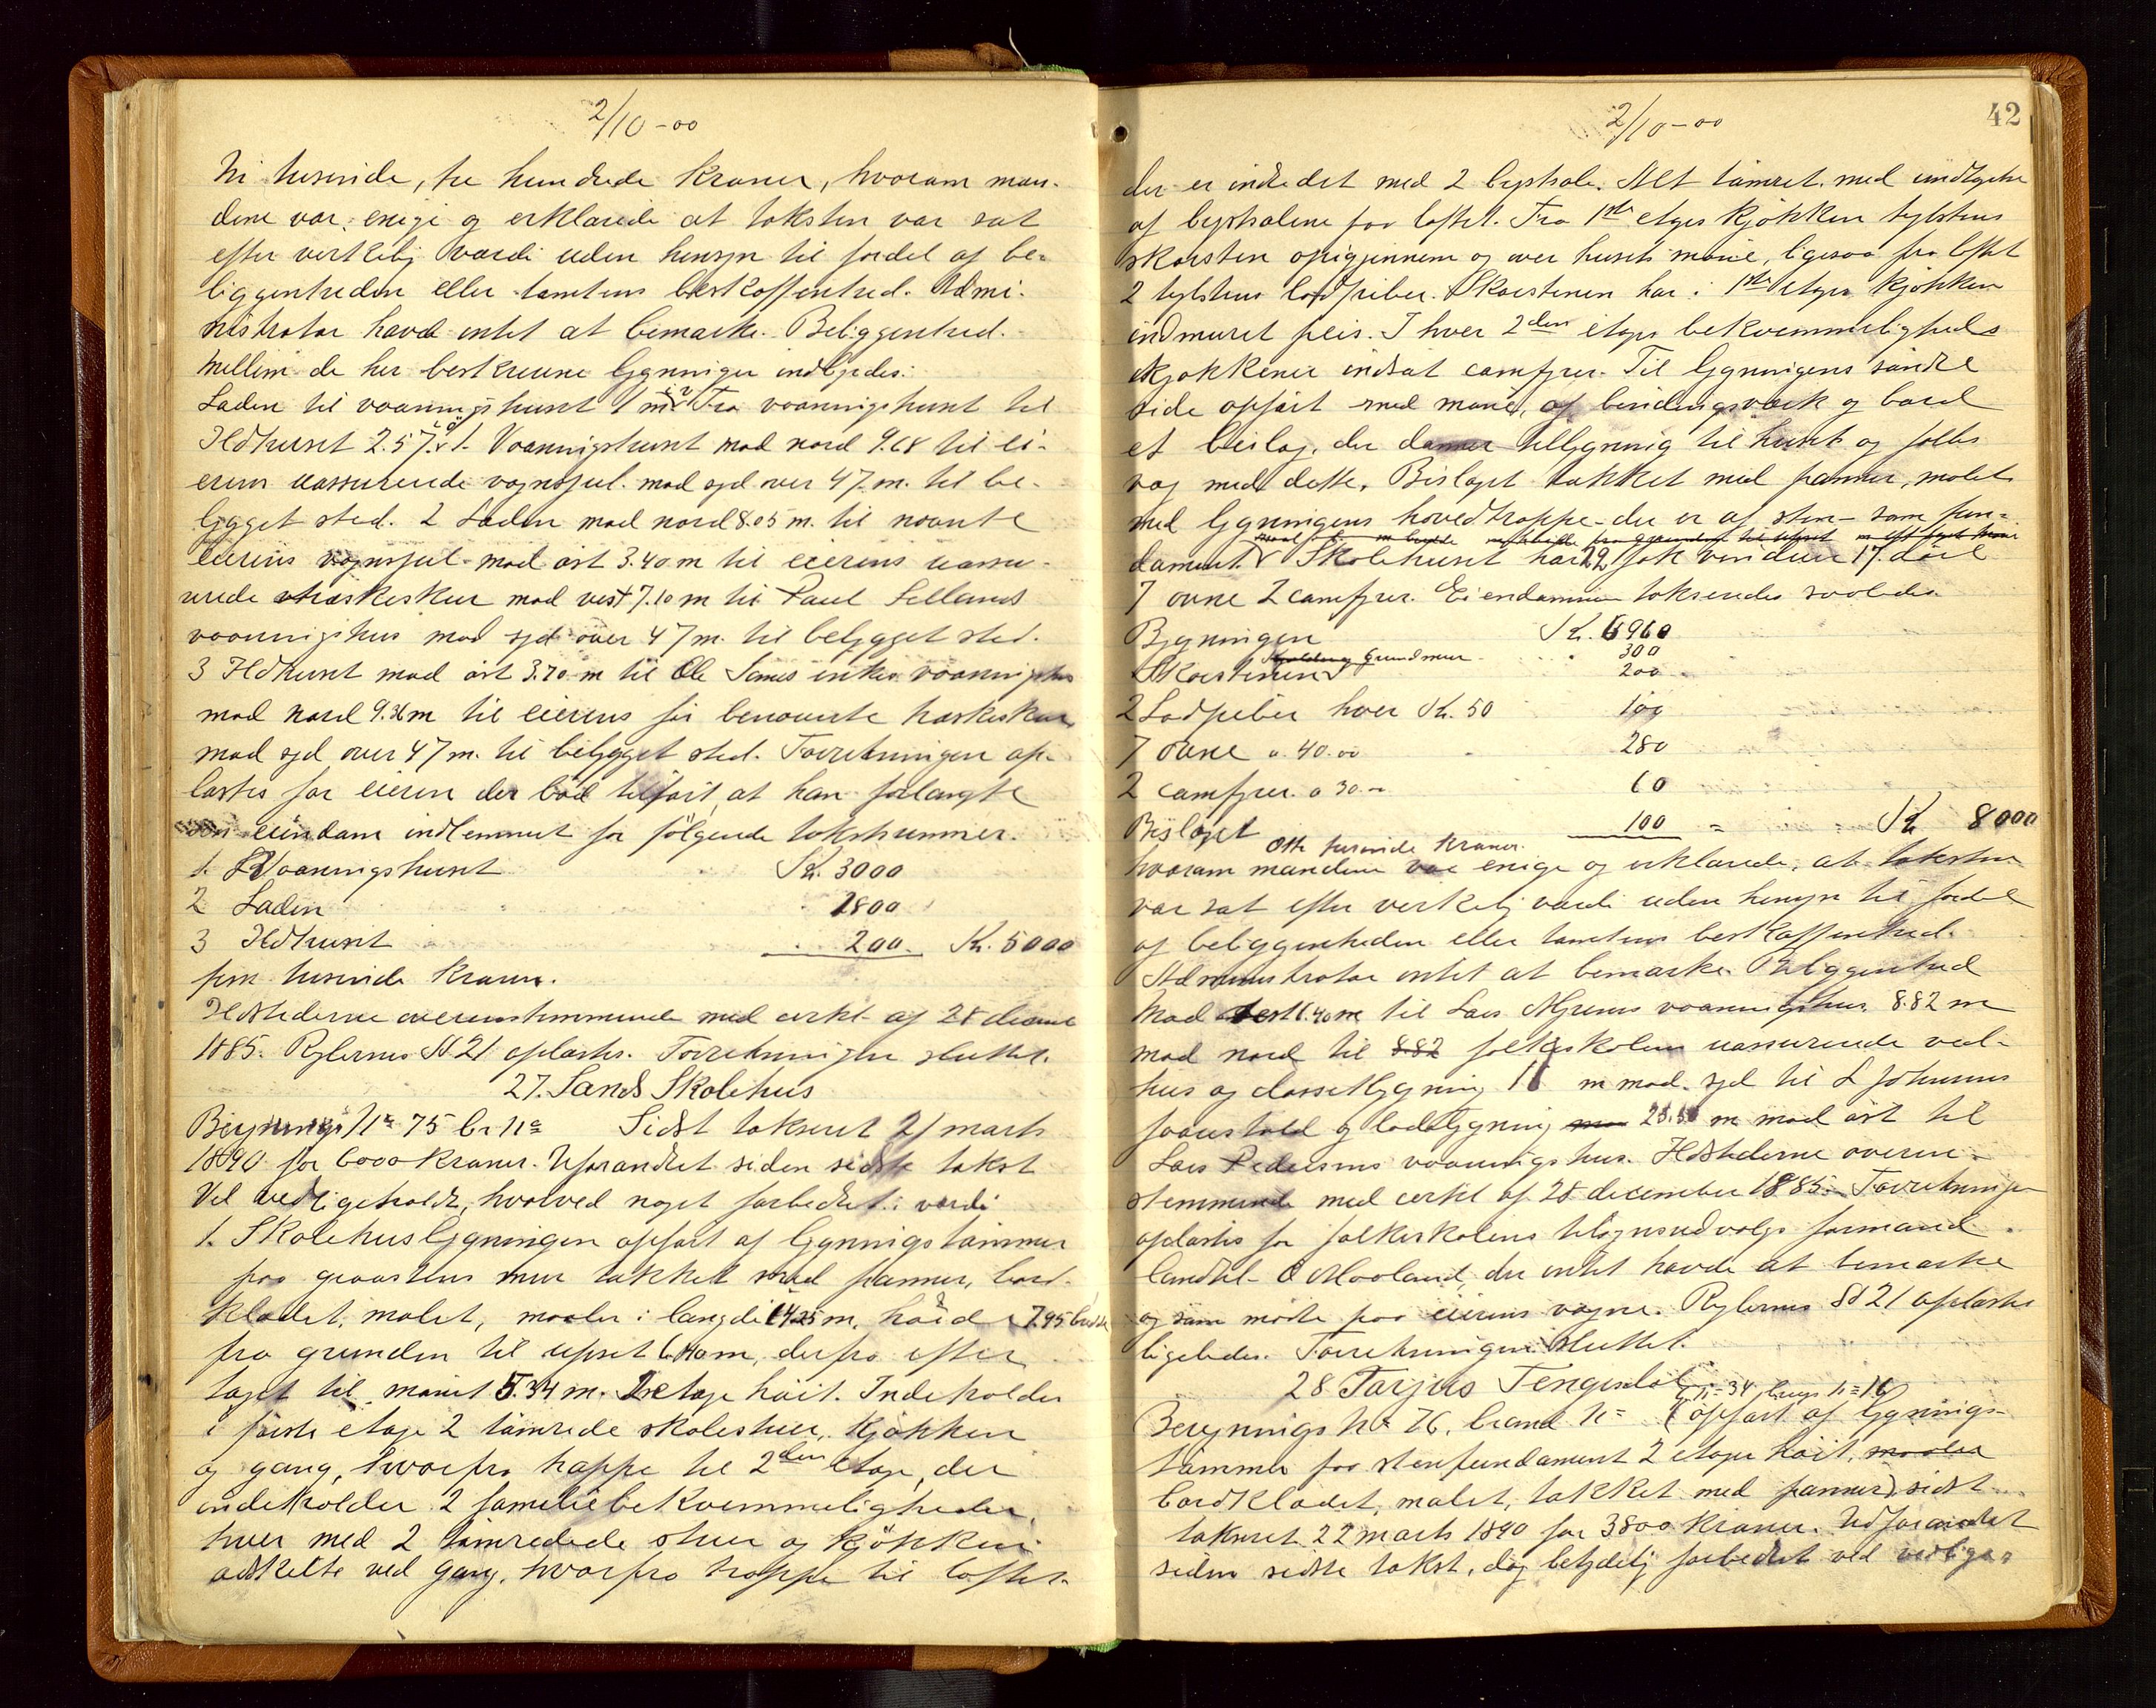 2/10-00
tusinde, tre hundrede kroner, hvorom mæn-
dene var enige og erklærede at taksten var sat
efter virkelig værdi uden hensyn til fordel af be-
liggenheden eller tomtens beskaffenhed. Admi-
nistrator havde intet at bemærke. Beliggenhed.
Mellem de her beskrevne bygninger indbyrdes:
Laden til vaaningshuset 1 m. Fra vaaningshuset til
Ildhuset 2.57. Vaaningshuset mod nord 9.68 til ei-
erens uassurerede vognsjul. mod syd over 47 m. til be-
bygget sted. 2 Laden mod nord 8.05 m. til nævnte
eierens vognsjul - mod øst 3.40 m til eierens uassu-
rerede træskeskur mod vest 7.10 m til Paul Sellands
vaaningshus mod syd over 47 m. til bebygget sted.
3 Ildhuset mod øst 3.70 m til Ole enkes vaaningshus
mod nord 9.36 m til eierens før benævnte træskeskur
mod syd over 47 m. til bebygget sted. Forretningen op-
læstes for eieren der bød tilført, at han forlangte
sin eiendom indlemmet for følgende takstsummer.
1. Vaaningshuset Kr. 3000
2 Laden 1800
3 Ildhuset 200. Kr. 5000
fem tusinde kroner.
Ildstederne overensstemmende med cirkl. af 28 decme
1885. Rylernes St 21 oplæstes. Forretningen sluttet.
27. Sands Skolehus
Bygnings No 75 br No Sidst takseret 21 marts
1890 for 6000 kroner. Uforandret siden sidste takst
Vel vedligeholdt, hvorved noget forbedret i værdi
1. Skolehusbygningen opført af bygningstømmer
paa graastens mur takket med panner, bord-
klædet, malet, maaler i længde 14.25 m, høide 7.95 bredde
fra grunden til ufset m, derfra efter
taget til mønet 5.34 m. 2 etage høit. Indeholder
i første etage 2 tømrede skolestuer, kjøkken
og gang, hvorfra trappe til 2den etage, der
indeholder 2 familiebekvemmeligheder,
hver med 2 tømrede stuer og kjøkken
adskilte ved gang, hvorfra trappe til loftet.
2/10-00
42
der er indredet med 2 Alt tømret med undtagelse
af paa loftet. Fra 1ste etages kjøkken teglstens
skorsten opigjennem og over husets møne, ligesaa fra loftet
2 teglstens lodpiber. Skorstenen har i 1ste etages kjøkken
indmuret peis. I hver 2den etages bekvemmeligheds
kjøkkener indsat camfyrer. Til bygningens søndre
side opført med møne, af bindingsværk og bord
et beilag, der danner tilbygning til huset og følles
vag med dette. Bislaget takket med panner, malet
med bygningens hovedtrappe - der er af sten - som fun-
dament. Skolehuset har 22 fak vinduer 17 døre
7 ovne 2 camfyrer. Eiendommen takseredes saaledes
Bygningen Kr. 6960
Grundmur 300
Skorstenen 200
2 Lodpiber hver Kr. 50 100
7 ovne a 40.00 280
2 camfyrer. a 30.- 60
Bislaget 100 = Kr 8000
Otte tusinde kroner.
hvorom mændene var enige og erklærede, at taksten
var sat efter virkelig værdi uden hensyn til fordel
af beliggenheden eller tomtens beskaffenhed.
Administrator intet at bemærke. Beliggenhed
Mod vest 6.40 m til Lars vaaningshus. 8.82 m
mod nord til 8.82 folkeskolens uassurerede ved-
hus og closetbygning m mod syd til L Johnsens
faarestald og ladebygning m mod øst til
Lars Pedersens vaaningshus. Ildstederne overens-
stemmende med cirkl. af 28 december 1885. Forretningen
oplæstes for folkeskolens tilsynsudvalgs formand
landhdl. O Moeland, der intet havde at bemærke
og som mødte paa eierens vegne. Rylernes St 21 oplæstes
ligeledes. Forretningen sluttet.
28. Tarjus Tengesdal
G N=34 brugs N=16
Bygnings No 76, brand No = (opført af bygnings-
tømmer paa stenfundament 2 etager høit, maaler
bordklædet, malet, takket med panner) sidst
takseret 22 marts 1890 for 3800 kroner. Uforandret
siden sidste takst, dog betydelig forbedret ved vedlige-